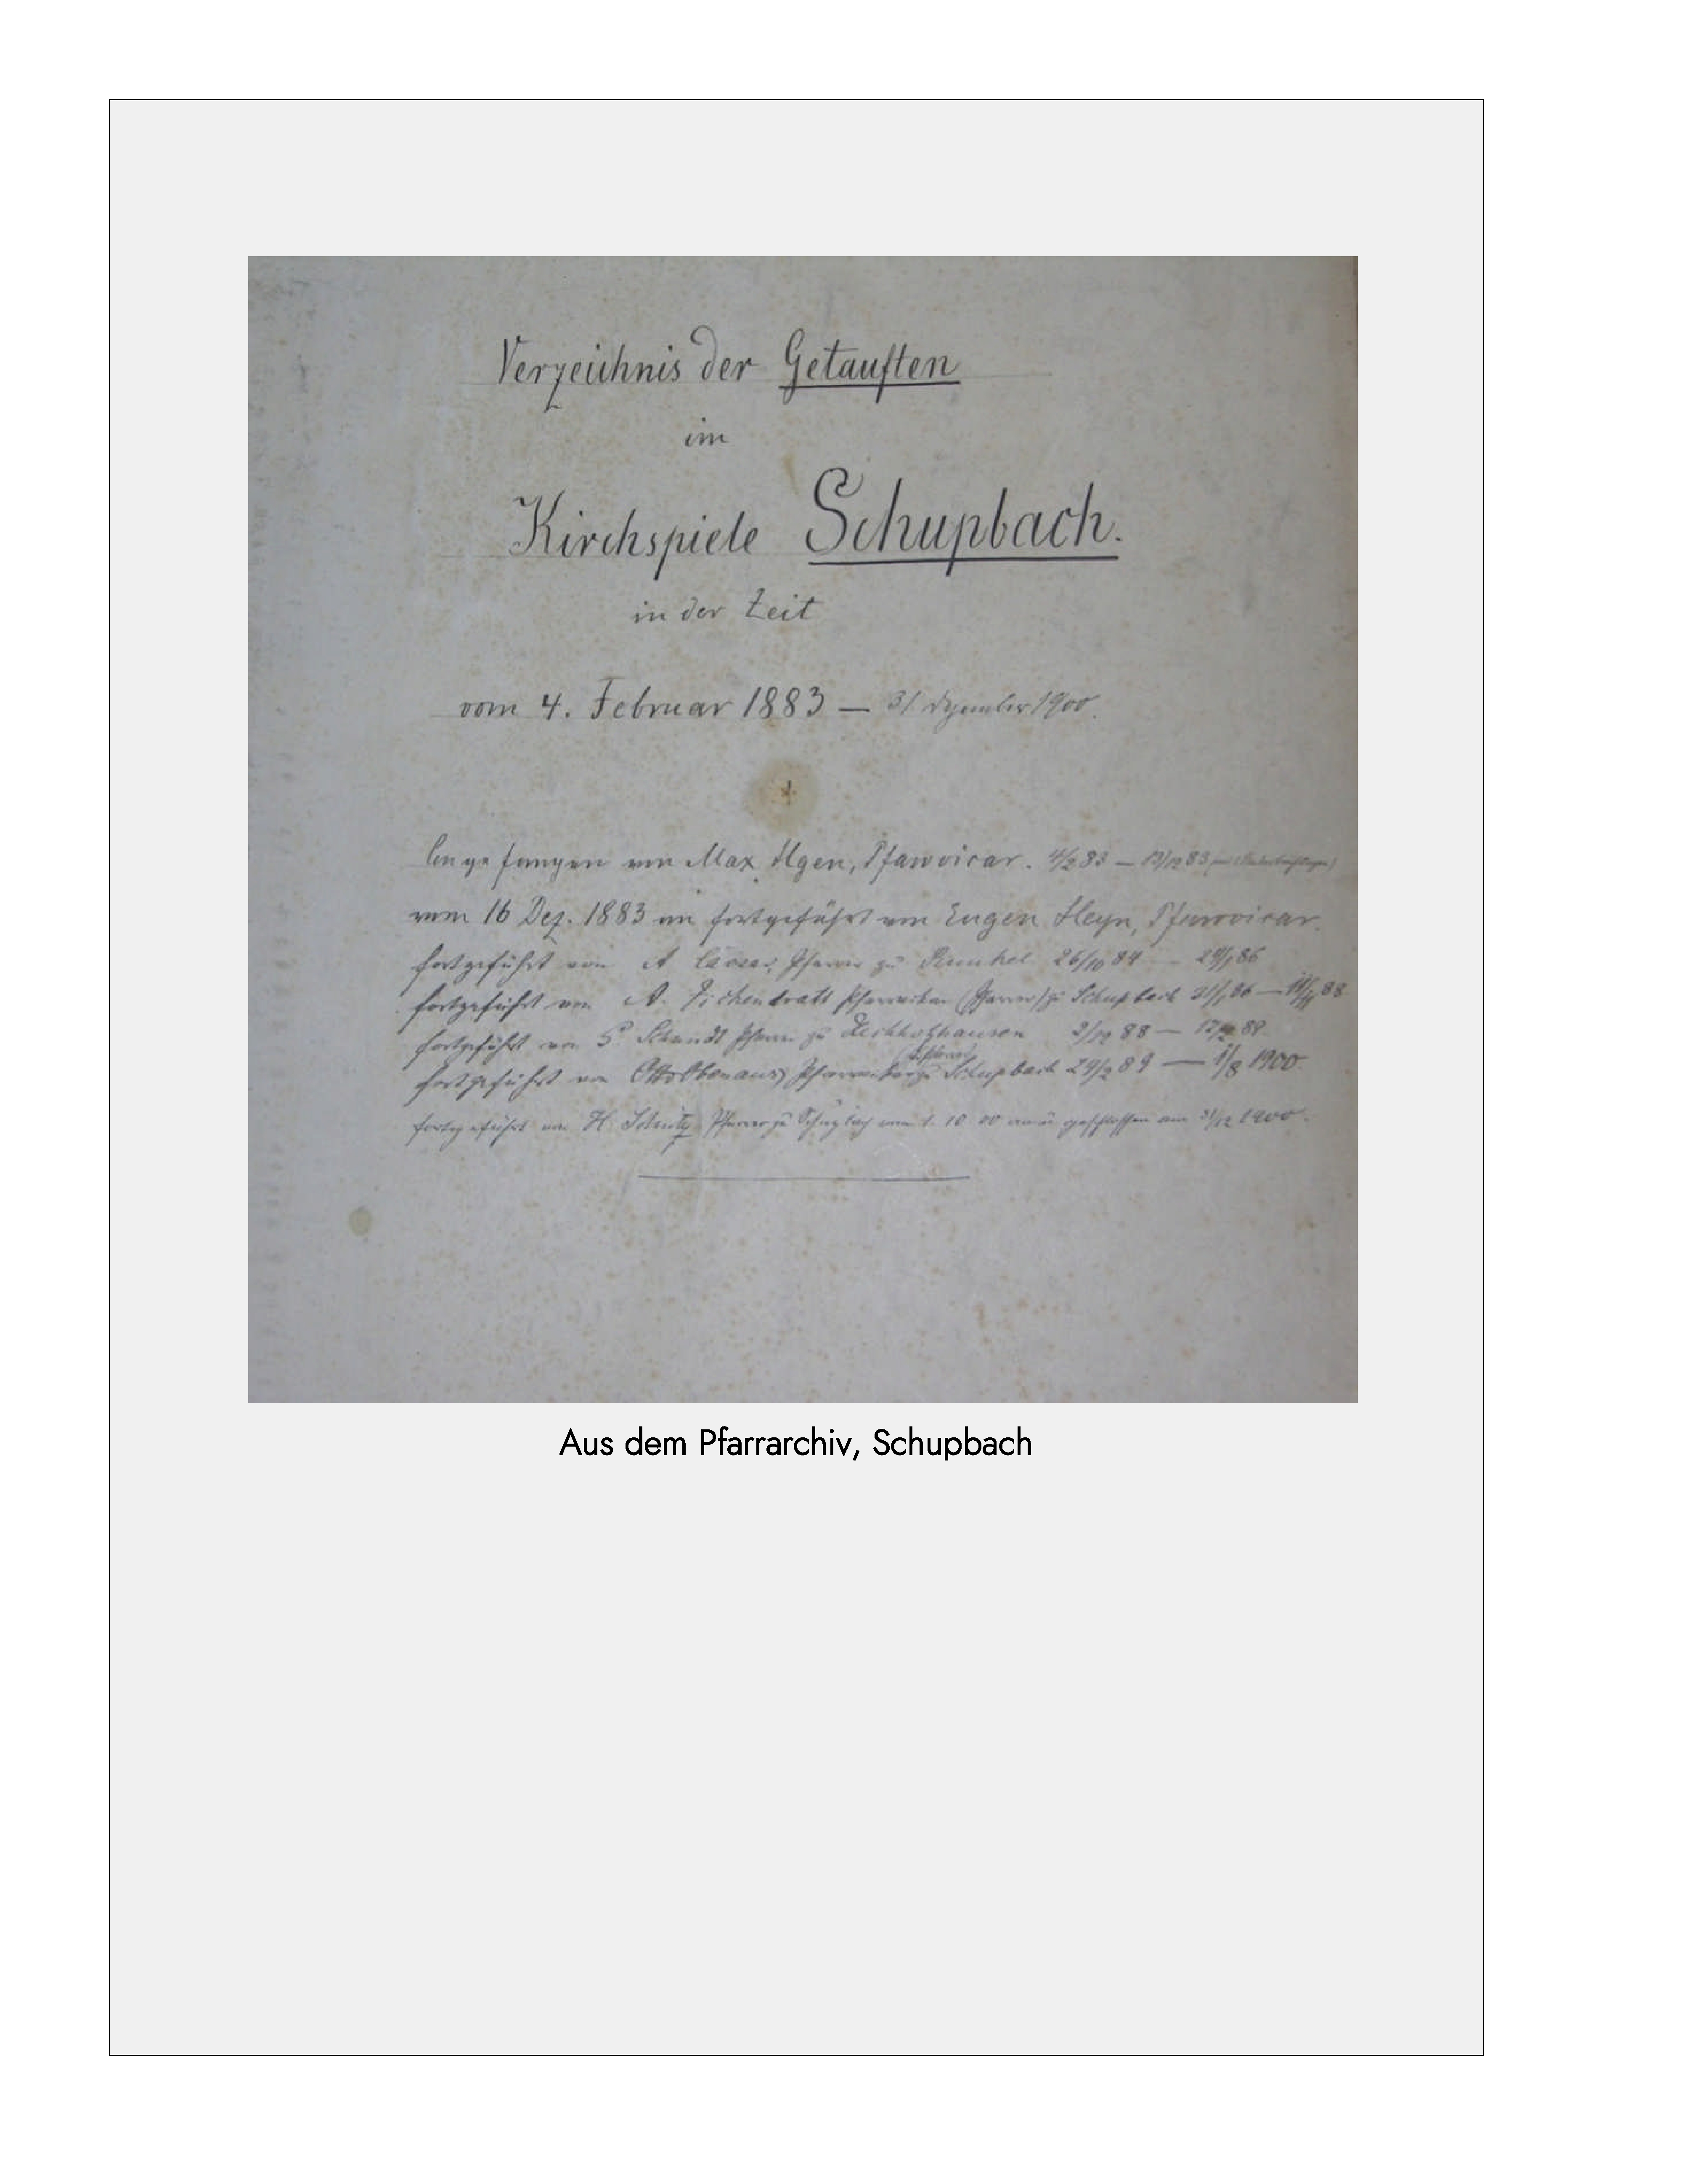 Verzeichnis der Getauften
im
Kirchspiele Schupbach.
in der Zeit
vom 4. Februar 1883 — 31 Dezember 1900.
Angefangen von Max Ilgen, Pfarrvicar. 4/2 83 — 13/12 83
vom 16 Dez. 1883 an fortgeführt von Eugen Heyn, Pfarrvicar.
fortgeführt von A Pfarrer zu Runkel 26/10 84 — 86
fortgeführt von A. Pfarrvikar (Pfarrer) zu Schupbach 31/1 86 — 88
fortgeführt von Pfarrer zu Heckholzhausen 88 — 89
fortgeführt von Otto Obenaus, Pfarrvikar zu Schupbach 24/2 89 — 1/8 1900
fortgeführt von H. Pfarrer zu Schupbach vom 1. 10. 00 an u geschlossen am 31/12 1900.
Aus dem Pfarrarchiv, Schupbach